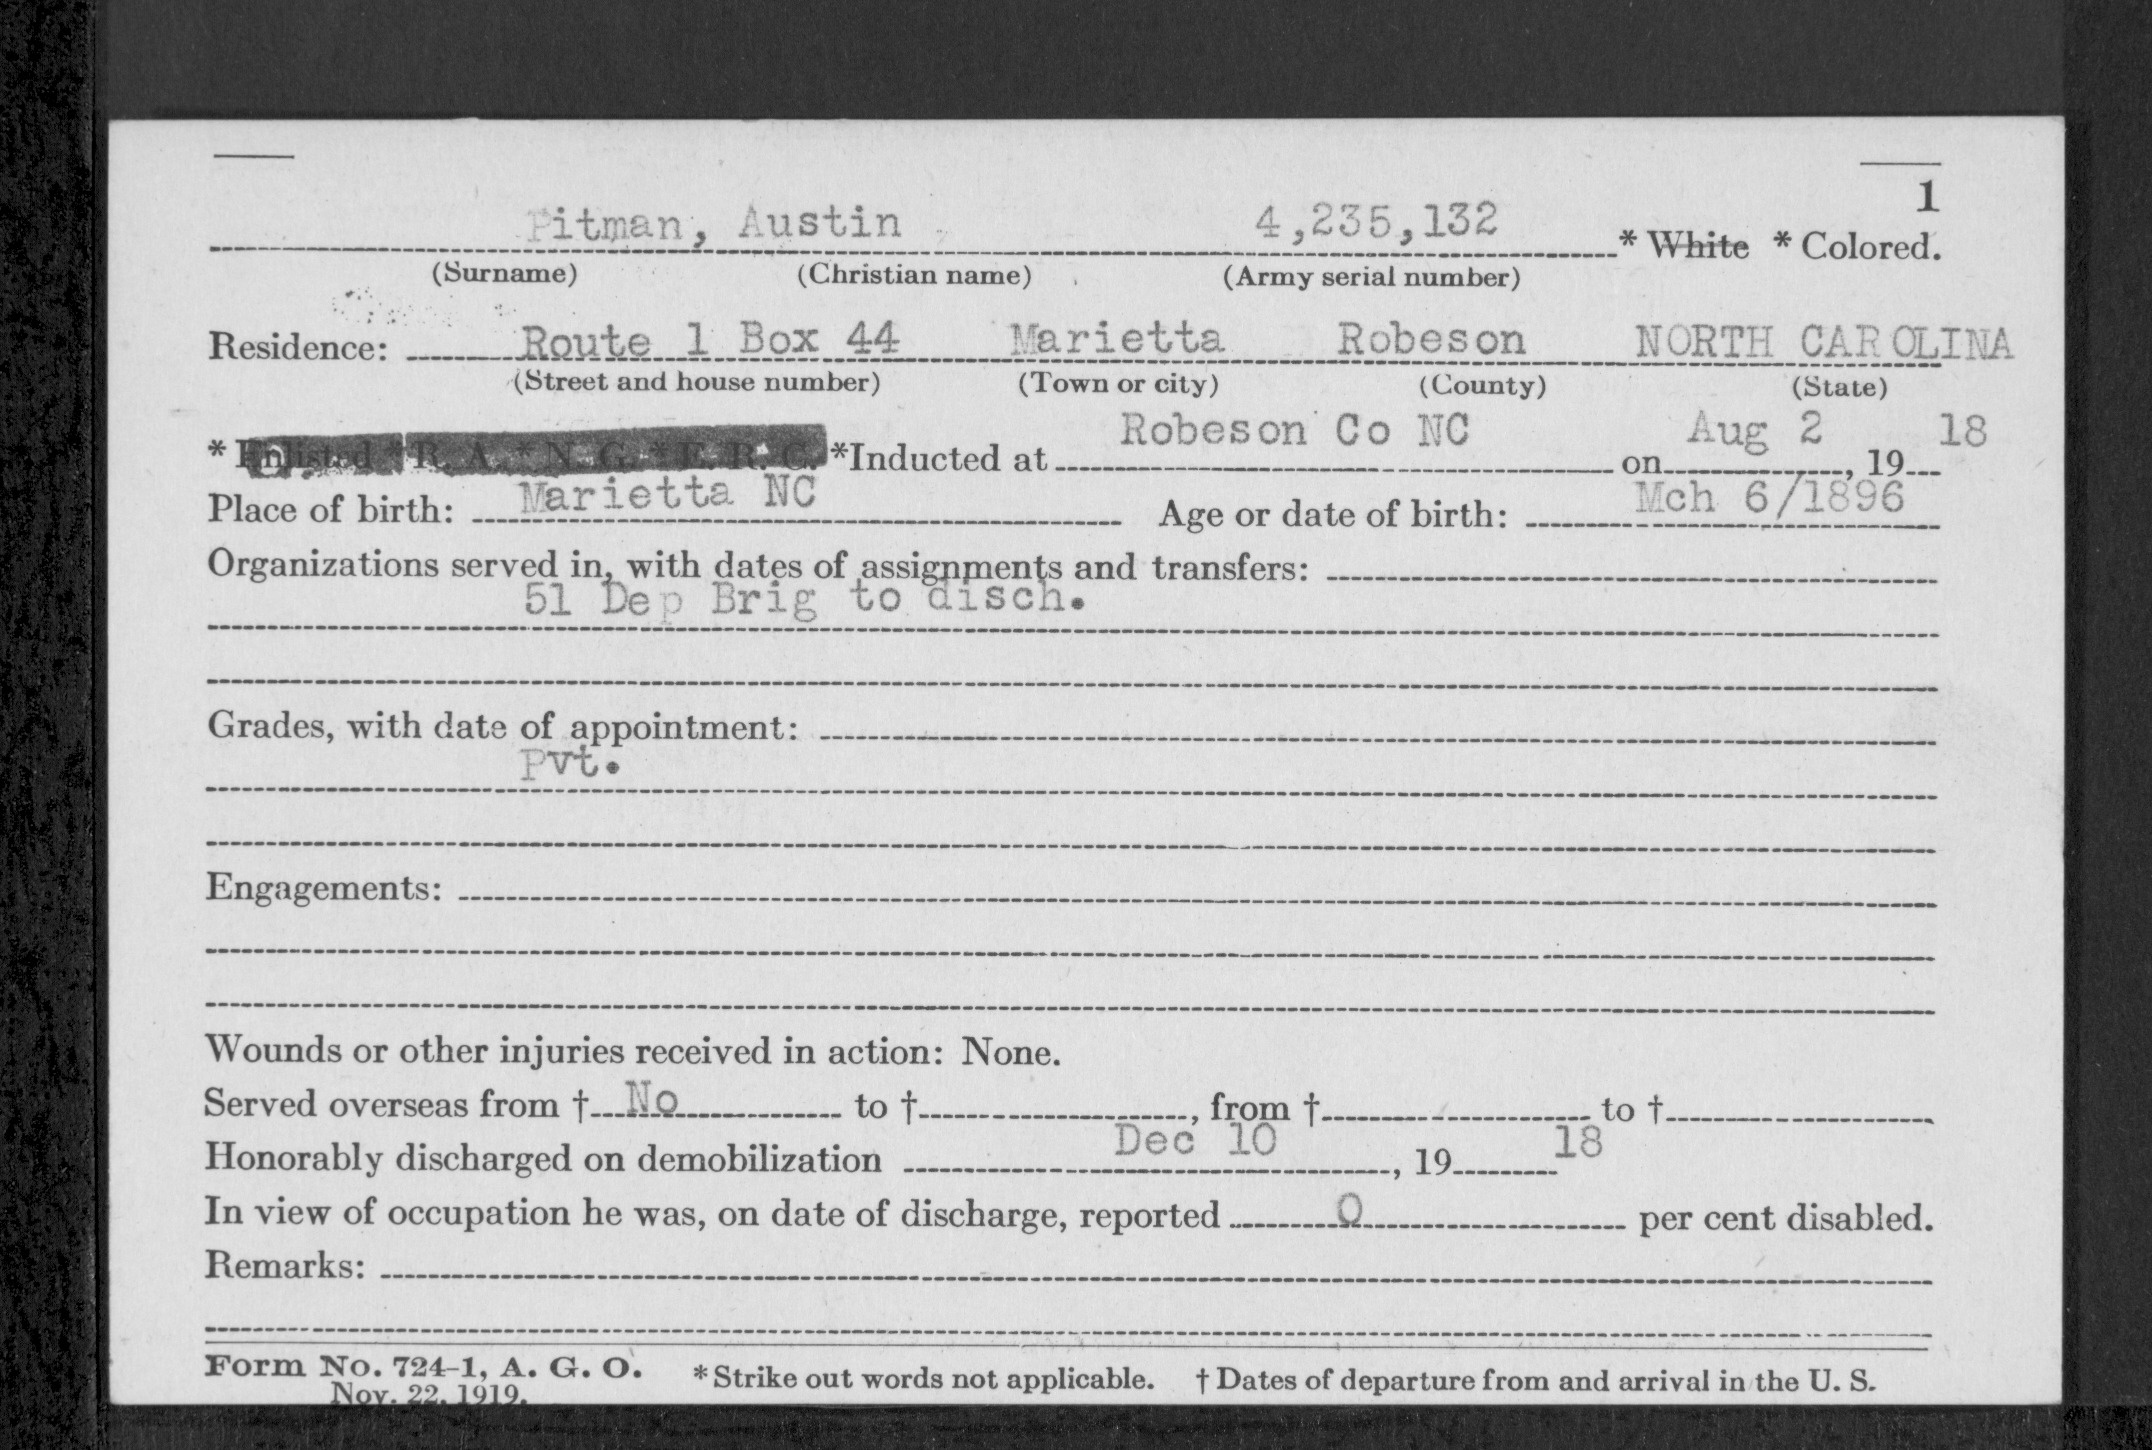 1
Pitman, Austin 4,235,132 * White * Colored.
(Surname) (Christian name) (Army serial number)
Residence: Route 1 Box 44 Marietta Robeson NORTH CAROLINA
(Street and house number) (Town or city) (County) (State)
* Enlisted * R. A. * N. G. * E. R. C. *Inducted at Robeson Co NC on Aug 2, 19 18
Place of birth: Marietta NC Age or date of birth: Mch 6/1896
Organizations served in, with dates of assignments and transfers:
51 Dep Brig to disch.
Grades, with date of appointment:
Pvt.
Engagements:
Wounds or other injuries received in action: None.
Served overseas from † No to †, from † to †
Honorably discharged on demobilization Dec 10, 19 18
In view of occupation he was, on date of discharge, reported 0 per cent disabled.
Remarks:
Form No. 724-1, A. G. O. * Strike out words not applicable. † Dates of departure from and arrival in the U. S.
Nov. 22, 1919.